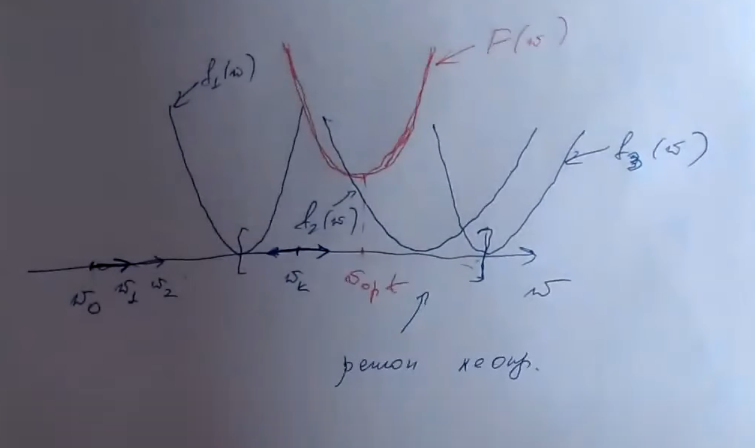 F(w)
f₁(w)
f₃(w)
f₂(w)
w₀ w₁ w₂ wₖ w opt w
регион неопр.